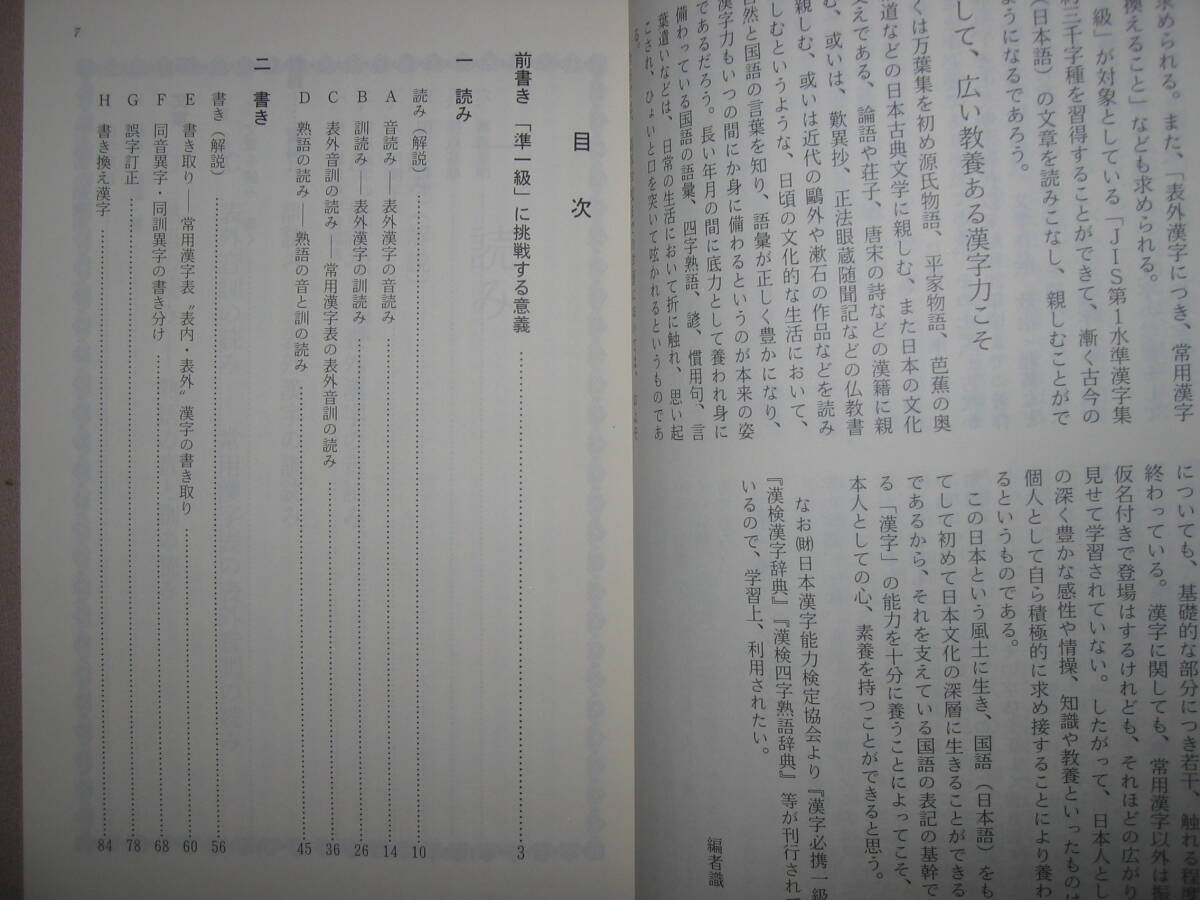 求められる。また、「表外漢字につき、常用漢字
換えること」なども求められる。
級」が対象としている「JIS第1水準漢字集
三千字種を習得することができて、漸く古今の
（日本語）の文章を読みこなし、親しむことがで
ようになるであろう。
して、広い教養ある漢字力こそ
くは万葉集を初め源氏物語、平家物語、芭蕉の奥
道などの日本古典文学に親しむ、また日本の文化
支えである、論語や荘子、唐宋の詩などの漢籍に親
む、或いは、歎異抄、正法眼蔵随聞記などの仏教書
親しむ、或いは近代の鷗外や漱石の作品などを読み
しむというような、日頃の文化的な生活において、
自然と国語の言葉を知り、語彙が正しく豊かになり、
漢字力もいつの間にか身に備わるというのが本来の姿
であるだろう。長い年月の間に底力として養われ身に
備わっている国語の語彙、四字熟語、諺、慣用句、言
葉遣いなどは、日常の生活において折に触れ、思い起
こされ、ひょいと口を突いて呟かれるというものであ
る。
についても、基礎的な部分につき若干、触れる程度
終わっている。漢字に関しても、常用漢字以外は振
仮名付きで登場はするけれども、それほどの広がり
見せて学習されていない。したがって、日本人とし
の深く豊かな感性や情操、知識や教養といったものは
個人として自ら積極的に求め接することにより養わ
るというものである。
この日本という風土に生き、国語（日本語）をも
てして初めて日本文化の深層に生きることができる
であるから、それを支えている国語の表記の基幹で
る「漢字」の能力を十分に養うことによってこそ、
本人としての心、素養を持つことができると思う。
なお㈶日本漢字能力検定協会より『漢字必携一級
『漢検漢字辞典』『漢検四字熟語辞典』等が刊行されて
いるので、学習上、利用されたい。
編者識
目次
前書き「準一級」に挑戦する意義……3
一 読み
読み（解説）……10
A 音読み――表外漢字の音読み……14
B 訓読み――表外漢字の訓読み……26
C 表外音訓の読み――常用漢字表の表外音訓の読み……36
D 熟語の読み――熟語の音と訓の読み……45
二 書き
書き（解説）……56
E 書き取り――常用漢字表〝表内・表外〟漢字の書き取り……60
F 同音異字・同訓異字の書き分け……68
G 誤字訂正……78
H 書き換え漢字……84
7